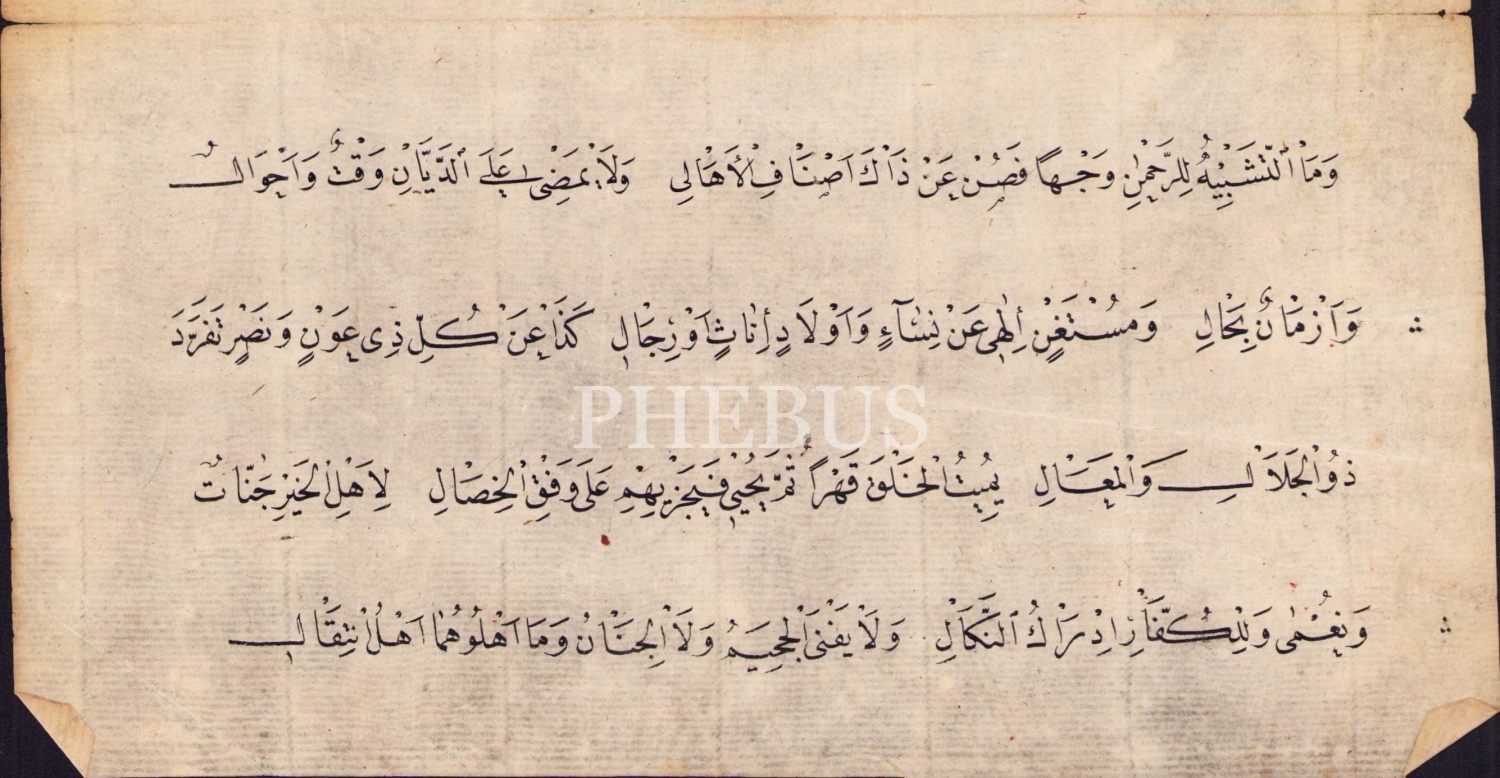 وَمَا التَّشْبِيْهُ لِلرَّحْمٰنِ وَجْهًا فَصُنْ عَنْ ذَاكَ اَصْنَافَ الْاَهَالِى وَلَا يَمْضِى عَلَى الدَّيَّانِ وَقْتٌ وَاَحْوَالٌ
وَاَزْمَانٌ بِحَالِ وَمُسْتَغْنٍ اِلٰهِى عَنْ نِسَآءٍ وَاَوْلَادٍ اِنَاثٍ اَوْ رِجَالِ كَذَا عَنْ كُلِّ ذِى عَوْنٍ وَنَصْرٍ تَفَرَّدَ
PHEBUS
ذُو الْجَلَالِ وَالْمَعَالِ يُمِيتُ الْخَلْقَ قَهْرًا ثُمَّ يُحْيِى فَيَجْزِيهِمْ عَلَى وَفْقِ الْخِصَالِ لِاَهْلِ الْخَيْرِ جَنَّاتٌ
وَنُعْمٰى وَلِلْكُفَّارِ اِدْرَاكُ النَّكَالِ وَلَا يَفْنَى الْجَحِيمُ وَلَا الْجِنَانُ وَمَا اَهْلُوهُمَا اَهْلُ انْتِقَالِ